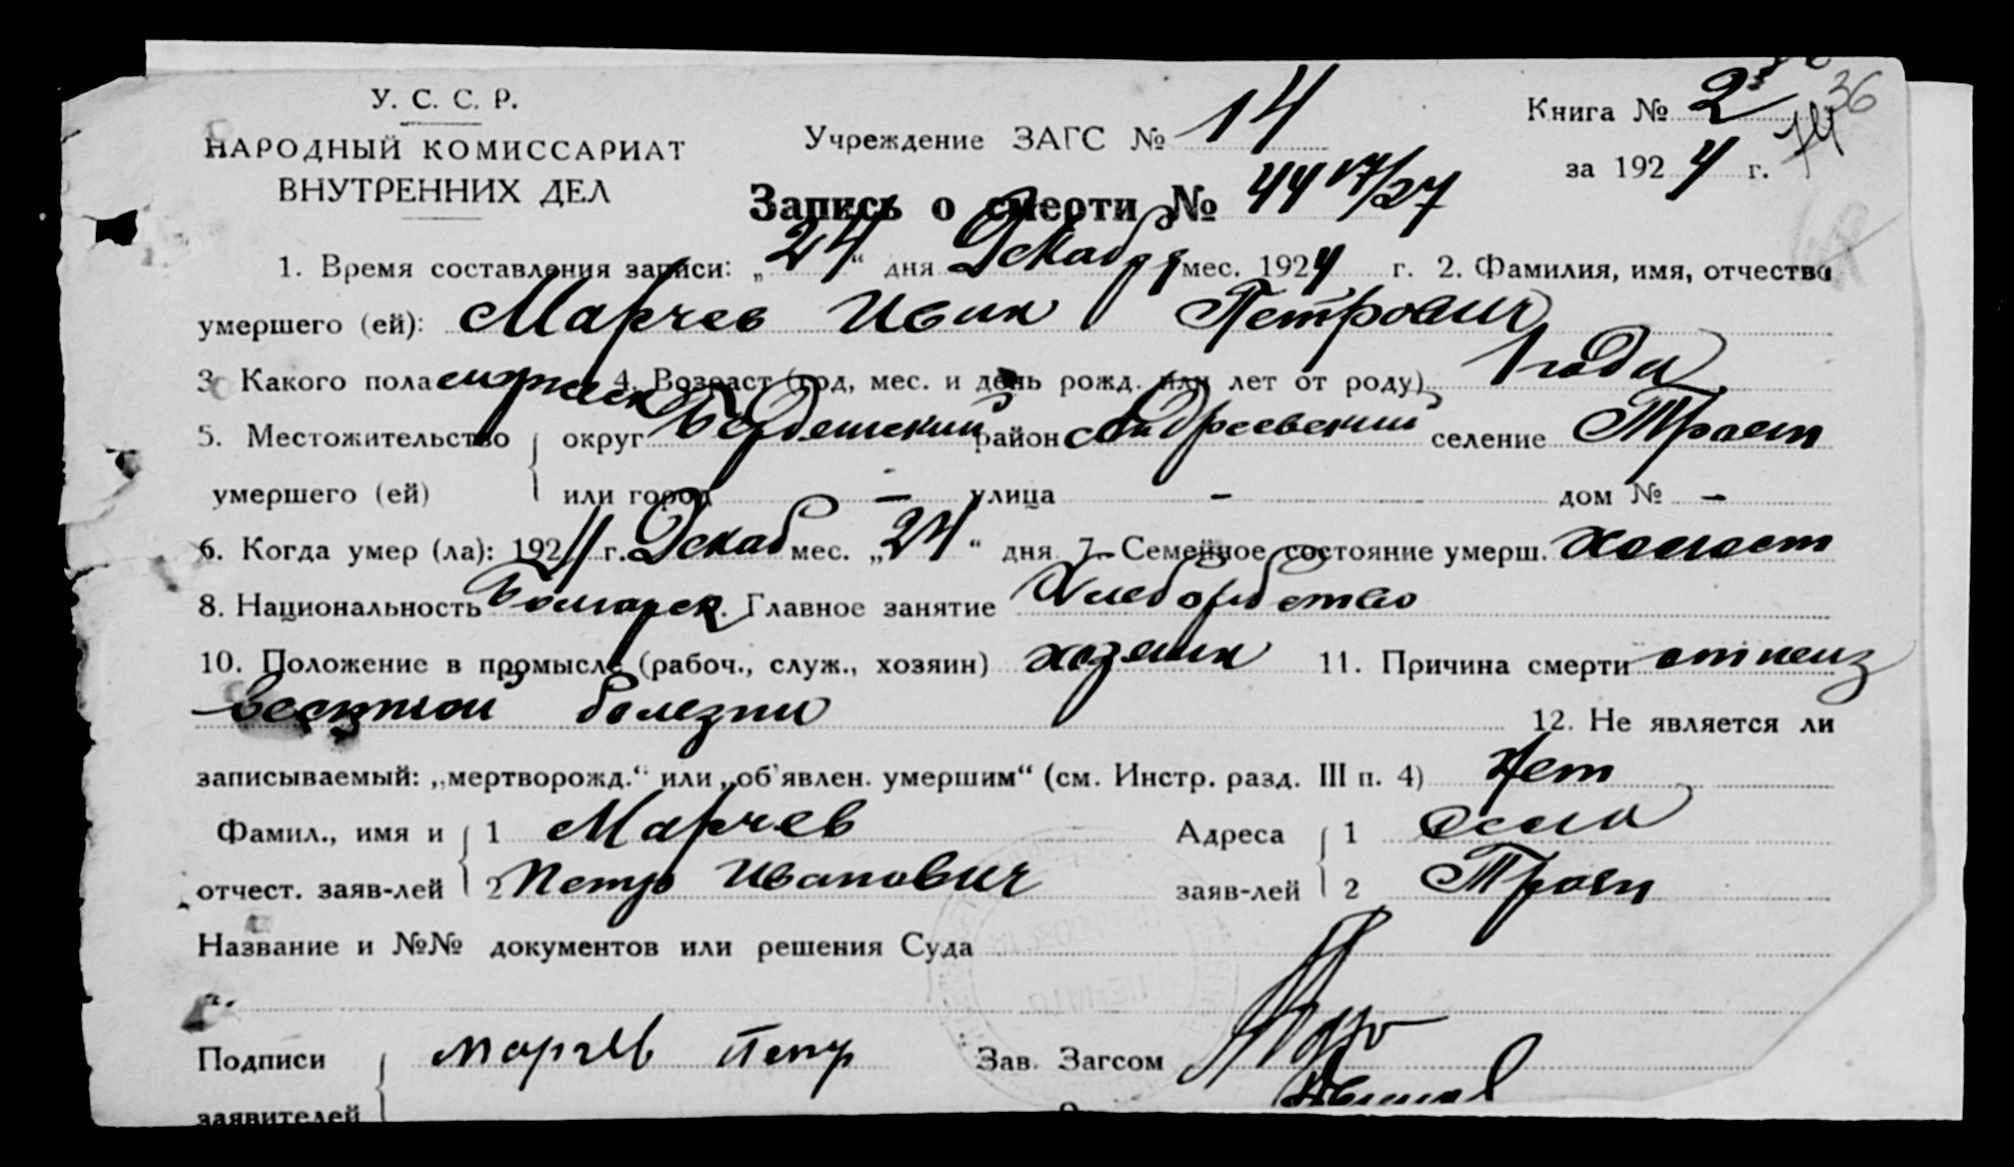 У. С. С. Р.
НАРОДНЫЙ КОМИССАРИАТ
ВНУТРЕННИХ ДЕЛ
Учреждение ЗАГС № 14
Книга № 2 36
за 1924 г. 74
Запись о смерти № 44 17/27
1. Время составления записи: „24“ дня Декабря мес. 1924 г. 2. Фамилия, имя, отчество
умершего (ей): Марчев Иван Петрович
3. Какого пола мужеск 4. Возраст (год, мес. и день рожд. или лет от роду) 1 года
5. Местожительство округ Бердянский район Андреевский селение Троян
умершего (ей) или город — улица — дом № —
6. Когда умер (ла): 1924 г. Декаб мес. „24“ дня 7. Семейное состояние умерш. холост
8. Национальность болгарск. Главное занятие Хлеборобство
10. Положение в промысле (рабоч., служ., хозяин) хозяин 11. Причина смерти от неиз
вестной болезни 12. Не является ли
записываемый: „мертворожд.“ или „об'явлен. умершим“ (см. Инстр. разд. III п. 4) Нет
Фамил., имя и 1 Марчев Адреса 1 села
отчест. заяв-лей 2 Петр Иванович заяв-лей 2 Троян
Название и №№ документов или решения Суда
Подписи Марчев Петр Зав. Загсом
заявителей